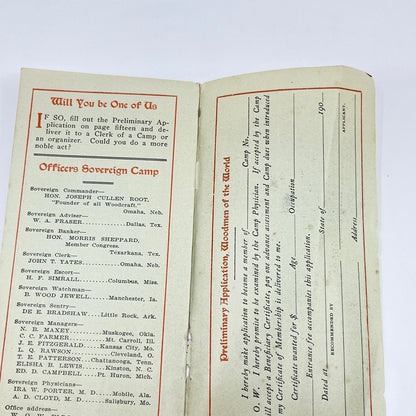 Will You be One of Us
IF SO, fill out the Preliminary Ap-
plication on page fifteen and de-
liver it to a Clerk of a Camp or
an organizer. Could you do a more
noble act?
Officers Sovereign Camp
Sovereign Commander—
HON. JOSEPH CULLEN ROOT,
"Founder of all Woodcraft."
Omaha, Neb.
Sovereign Adviser—
W. A. FRASER, Dallas, Tex.
Sovereign Banker—
HON. MORRIS SHEPPARD,
Member Congress.
Texarkana, Tex.
Sovereign Clerk—
JOHN T. YATES, Omaha, Neb.
Sovereign Escort—
H. F. SIMRALL, Columbus, Miss.
Sovereign Watchman—
B. WOOD JEWELL, Manchester, Ia.
Sovereign Sentry—
DE E. BRADSHAW, Little Rock, Ark.
Sovereign Managers—
N. B. MAXEY, Muskogee, Okla.
C. C. FARMER, Mt. Carroll, Ill.
J. E. FITZGERALD, Kansas City, Mo.
L. Q. RAWSON, Cleveland, O.
T. E. PATTERSON, Chattanooga, Tenn.
ELISHA B. LEWIS, Kinston, N. C.
ED. D. CAMPBELL, Pt. Huron, Mich.
Sovereign Physicians—
IRA W. PORTER, M. D., Mobile, Ala.
A. D. CLOYD, M. D., Omaha, Neb.
Office address—
Preliminary Application, Woodmen of the World
I hereby make application to become a member of Camp No.
O. W. I hereby promise to be examined by the Camp Physician. If accepted by the Camp
all accept a Beneficiary Certificate, pay one advance assessment and Camp dues when introduced
Certificate of Membership is delivered to me.
Certificate wanted for $ Age Occupation
Entrance fee accompanies this application.
Dated at State of 190
RECOMMENDED BY
APPLICANT.
Address